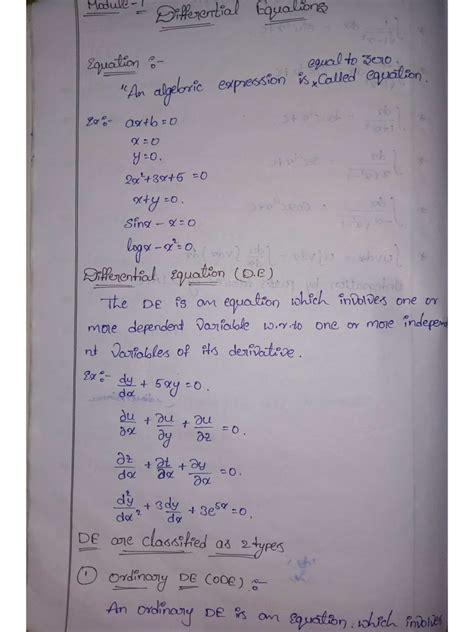 Module-1
Differential Equations
Equation :-
equal to zero.
"An algebric expression is × Called equation.
Ex:- ax+b=0
x=0
y=0.
2x²+3x+5=0
x+y=0.
Sinx - x=0
logx - x²=0.
Differential Equation (D.E)
The DE is an equation which involves one or
more dependent Variable w.r.to one or more indepen
nt Variables of its derivative.
Ex:- dy/dx + 5xy=0.
∂u/∂x + ∂u/∂y + ∂u/∂z =0.
∂z/∂x + ∂t/∂x + ∂y/∂x =0.
d²y/dx² + 3dy/dx + 3e^5x=0.
DE are classified as 2 types
① Ordinary DE (ODE) :-
An ordinary DE is an Equation. which involves